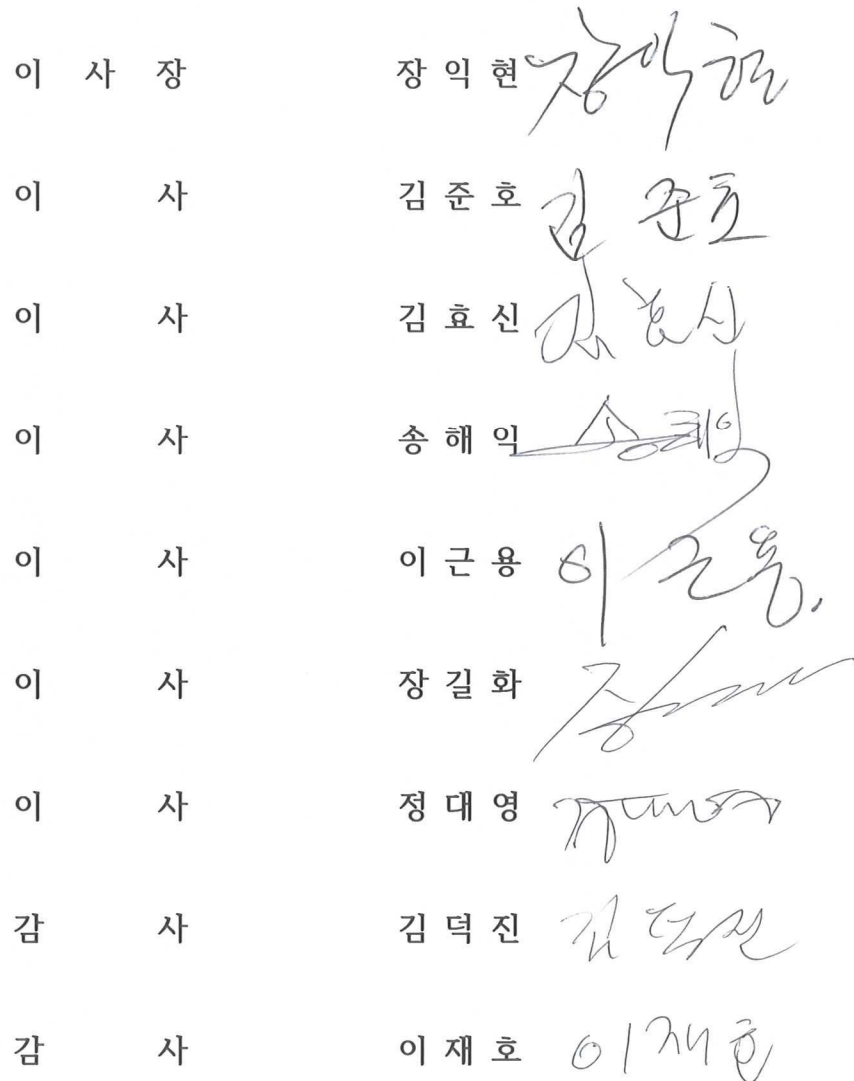 이 사 장 장 익 현 장익현
이 사 김 준 호 김준호
이 사 김 효 신 김효신
이 사 송 해 익 송해익
이 사 이 근 용 이근용.
이 사 장 길 화 장
이 사 정 대 영
감 사 김 덕 진 김덕진
감 사 이 재 호 이재호